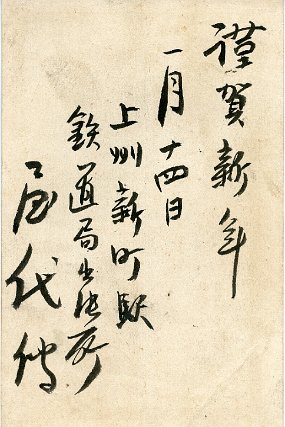 謹賀新年
一月十四日
上州新町駅
鉄道局出張所
屋代傳